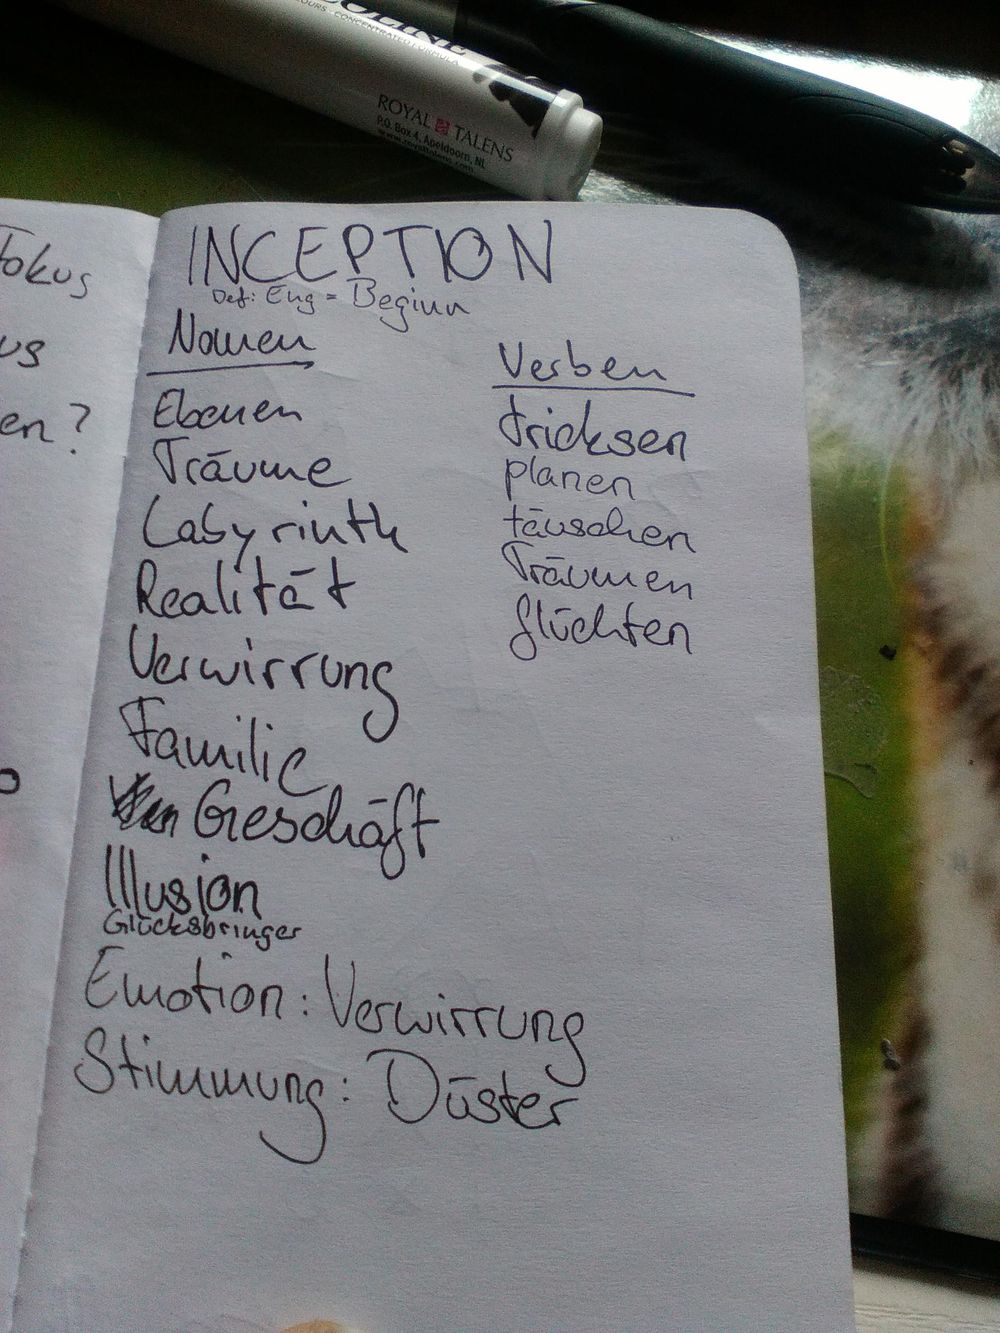 COLOURS - CONCENTRATED FORMULA
ROYAL TALENS
P.O. Box 4, Apeldoorn, NL
www.royaltalens.com
Fokus
us
en?
INCEPTION
Def: Eng = Beginn
Nomen
Ebenen
Träume
Labyrinth
Realität
Verwirrung
Familie
Geschäft
Illusion
Glücksbringer
Verben
tricksen
planen
täuschen
Träumen
flüchten
Emotion: Verwirrung
Stimmung: Düster